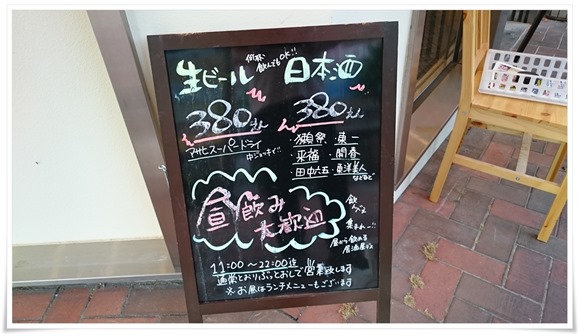 生ビール
何杯
飲んでもOK!!
日本酒
380えん
アサヒスーパードライ
中ジョッキイ"
380えん
・獺祭・東一
・来福・開春
・田中六五・東洋美人
などなど
昼飲み
大歓迎
飲ん
集まれー!!
昼から飲める
居酒屋デス
11:00〜22:00迄
通常どおりぶっとおしで営業致します
※お昼はランチメニューもございます